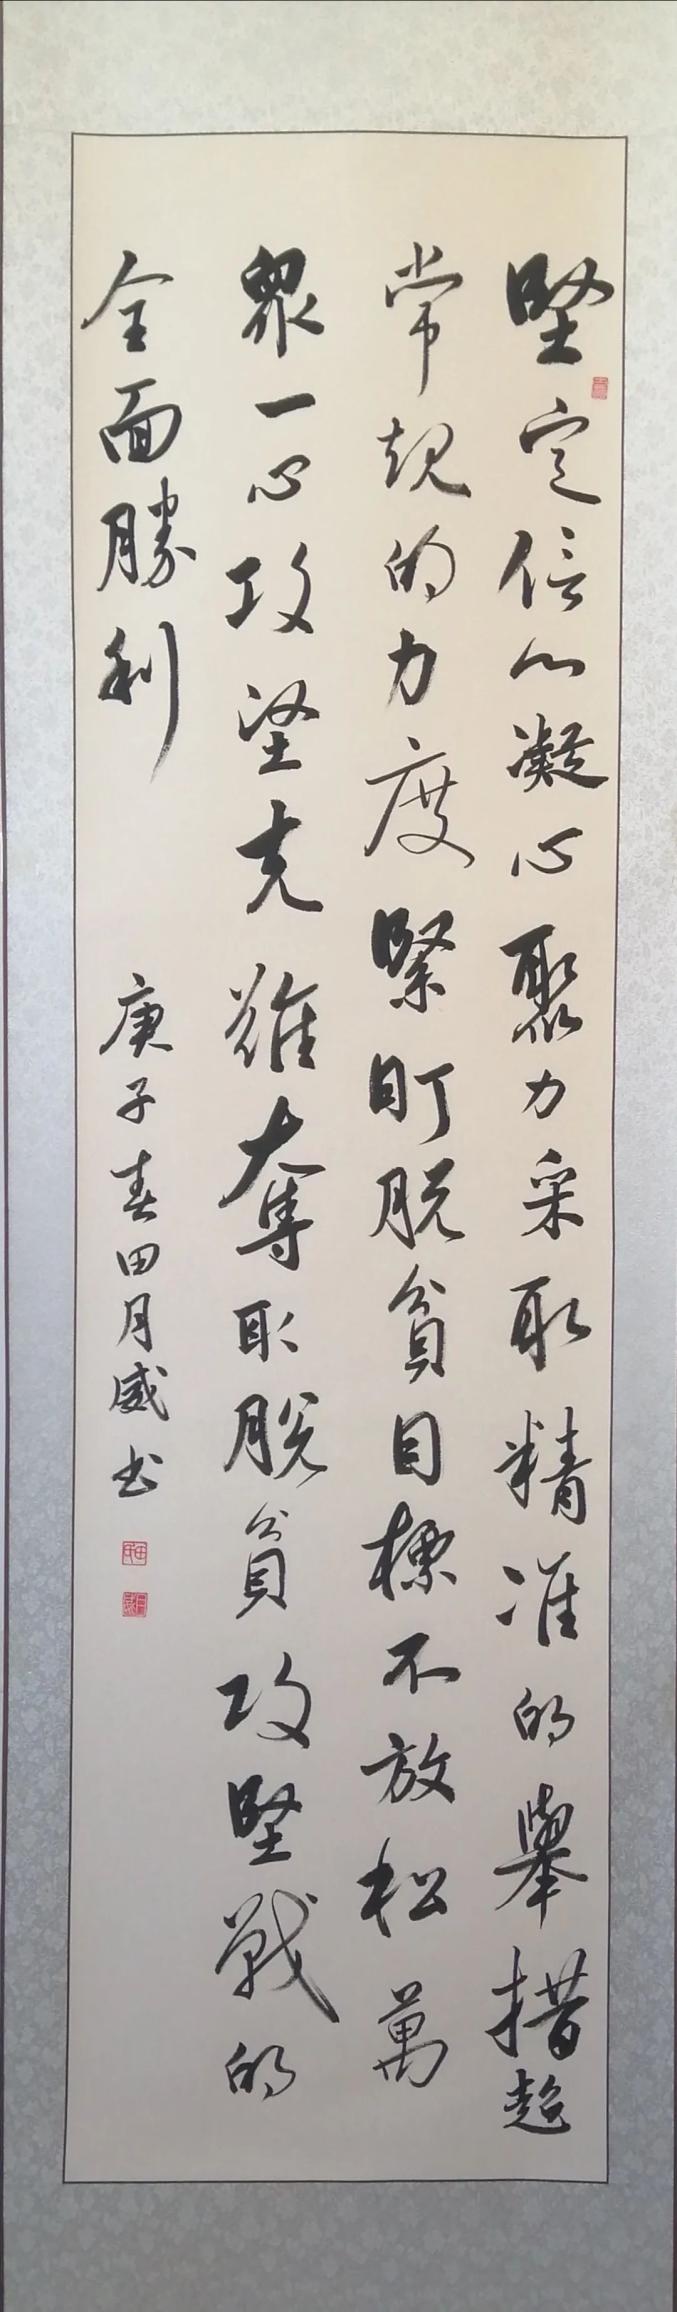 堅定信心凝心聚力采取精准的舉措超
常規的力度緊盯脱貧目標不放松萬
衆一心攻坚克難奪取脱貧攻堅戰的
全面勝利
庚子春田月威书